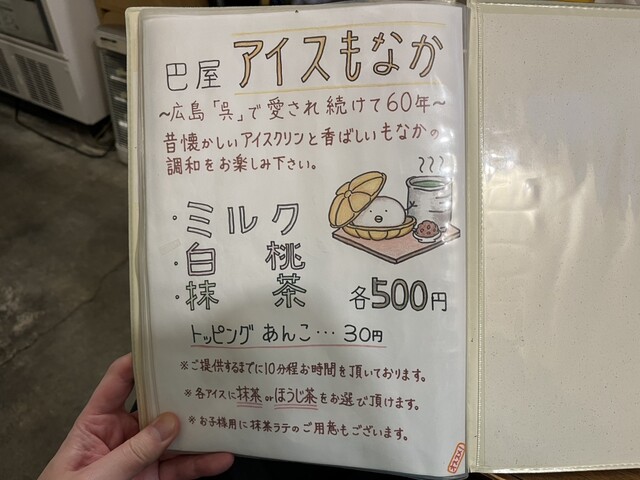 巴屋 アイスもなか
～広島「呉」で愛され続けて60年～
昔懐かしいアイスクリンと香ばしいもなかの
調和をお楽しみ下さい。
・ミルク
・白桃
・抹茶 各500円
トッピング あんこ…30円
※ご提供するまでに10分程お時間を頂いております。
※各アイスに抹茶orほうじ茶をお選び頂けます。
※お子様用に抹茶ラテのご用意もございます。